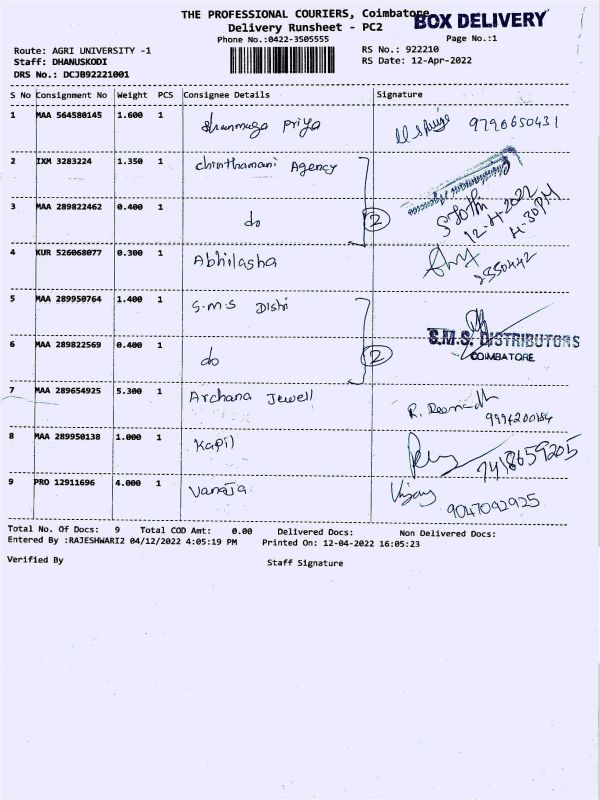 THE PROFESSIONAL COURIERS, Coimbatore
BOX DELIVERY
Delivery Runsheet - PC2
Phone No.:0422-3505555
Page No.:1
Route: AGRI UNIVERSITY -1
RS No.: 922210
Staff: DHANUSKODI
RS Date: 12-Apr-2022
DRS No.: DCJB92221001
S No Consignment No Weight PCS Consignee Details Signature
1 MAA 564580145 1.600 1 Shanmuga Priya 9790650431
2 IXM 3283224 1.350 1 Chinthamani Agency
3 MAA 289822462 0.400 1 do 2 12-4-2022
4-30PM
4 KUR 526068077 0.300 1 Abhilasha 2550442
5 MAA 289950764 1.400 1 S.M.S Distri
S.M.S. DISTRIBUTORS
COIMBATORE
6 MAA 289822569 0.400 1 do 2
7 MAA 289654925 5.300 1 Archana Jewell R.
8 MAA 289950138 1.000 1 Kapil 7418659205
9 PRO 12911696 4.000 1 Vanaja Vijay
9047092925
Total No. Of Docs: 9 Total COD Amt: 0.00 Delivered Docs: Non Delivered Docs:
Entered By :RAJESHWARI2 04/12/2022 4:05:19 PM Printed On: 12-04-2022 16:05:23
Verified By Staff Signature